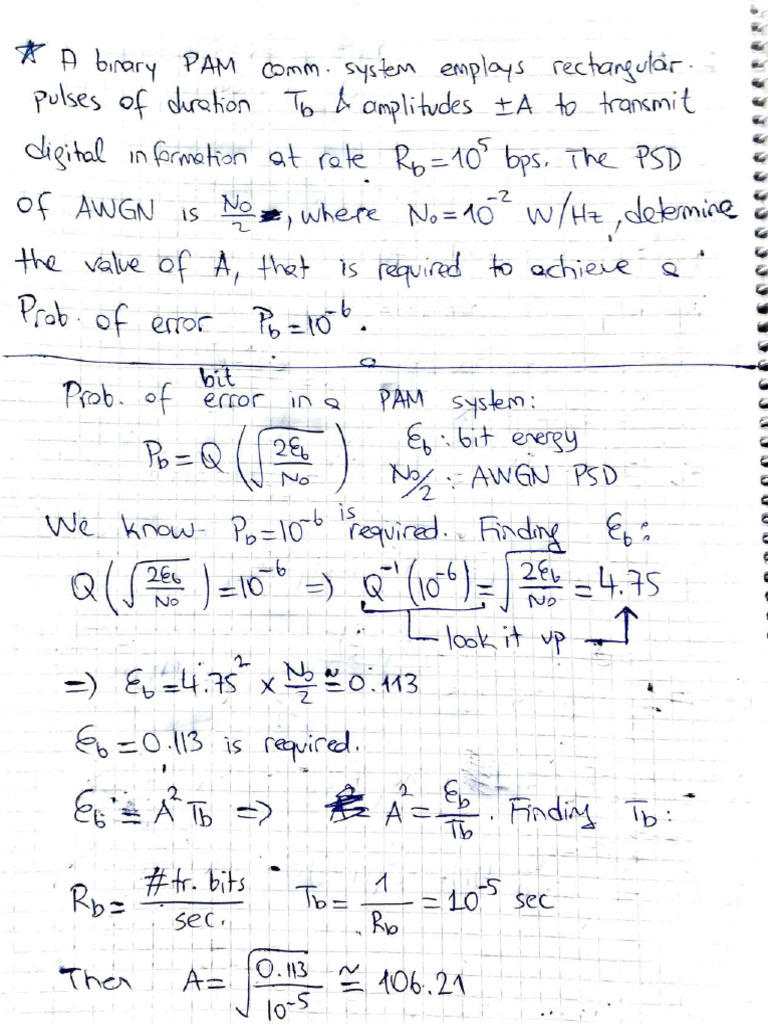 * A binary PAM comm. system employs rectangular
pulses of duration Tb & amplitudes ±A to transmit
digital information at rate Rb=10^5 bps. The PSD
of AWGN is No/2, where No=10^-2 W/Hz, determine
the value of A, that is required to achieve a
Prob. of error Pb=10^-6.
Prob. of bit error in a PAM system:
Pb = Q(√(2Eb/No)) Eb: bit energy
No/2: AWGN PSD
We know Pb=10^-6 is required. Finding Eb:
Q(√(2Eb/No))=10^-6 => Q^-1(10^-6)=√(2Eb/No)=4.75
look it up
=> Eb=4.75^2 × No/2 ≅ 0.113
Eb=0.113 is required.
Eb = A^2 Tb => A^2 = Eb/Tb. Finding Tb:
Rb = #tr. bits/sec. Tb = 1/Rb = 10^-5 sec
Then A = √(0.113/10^-5) ≅ 106.21